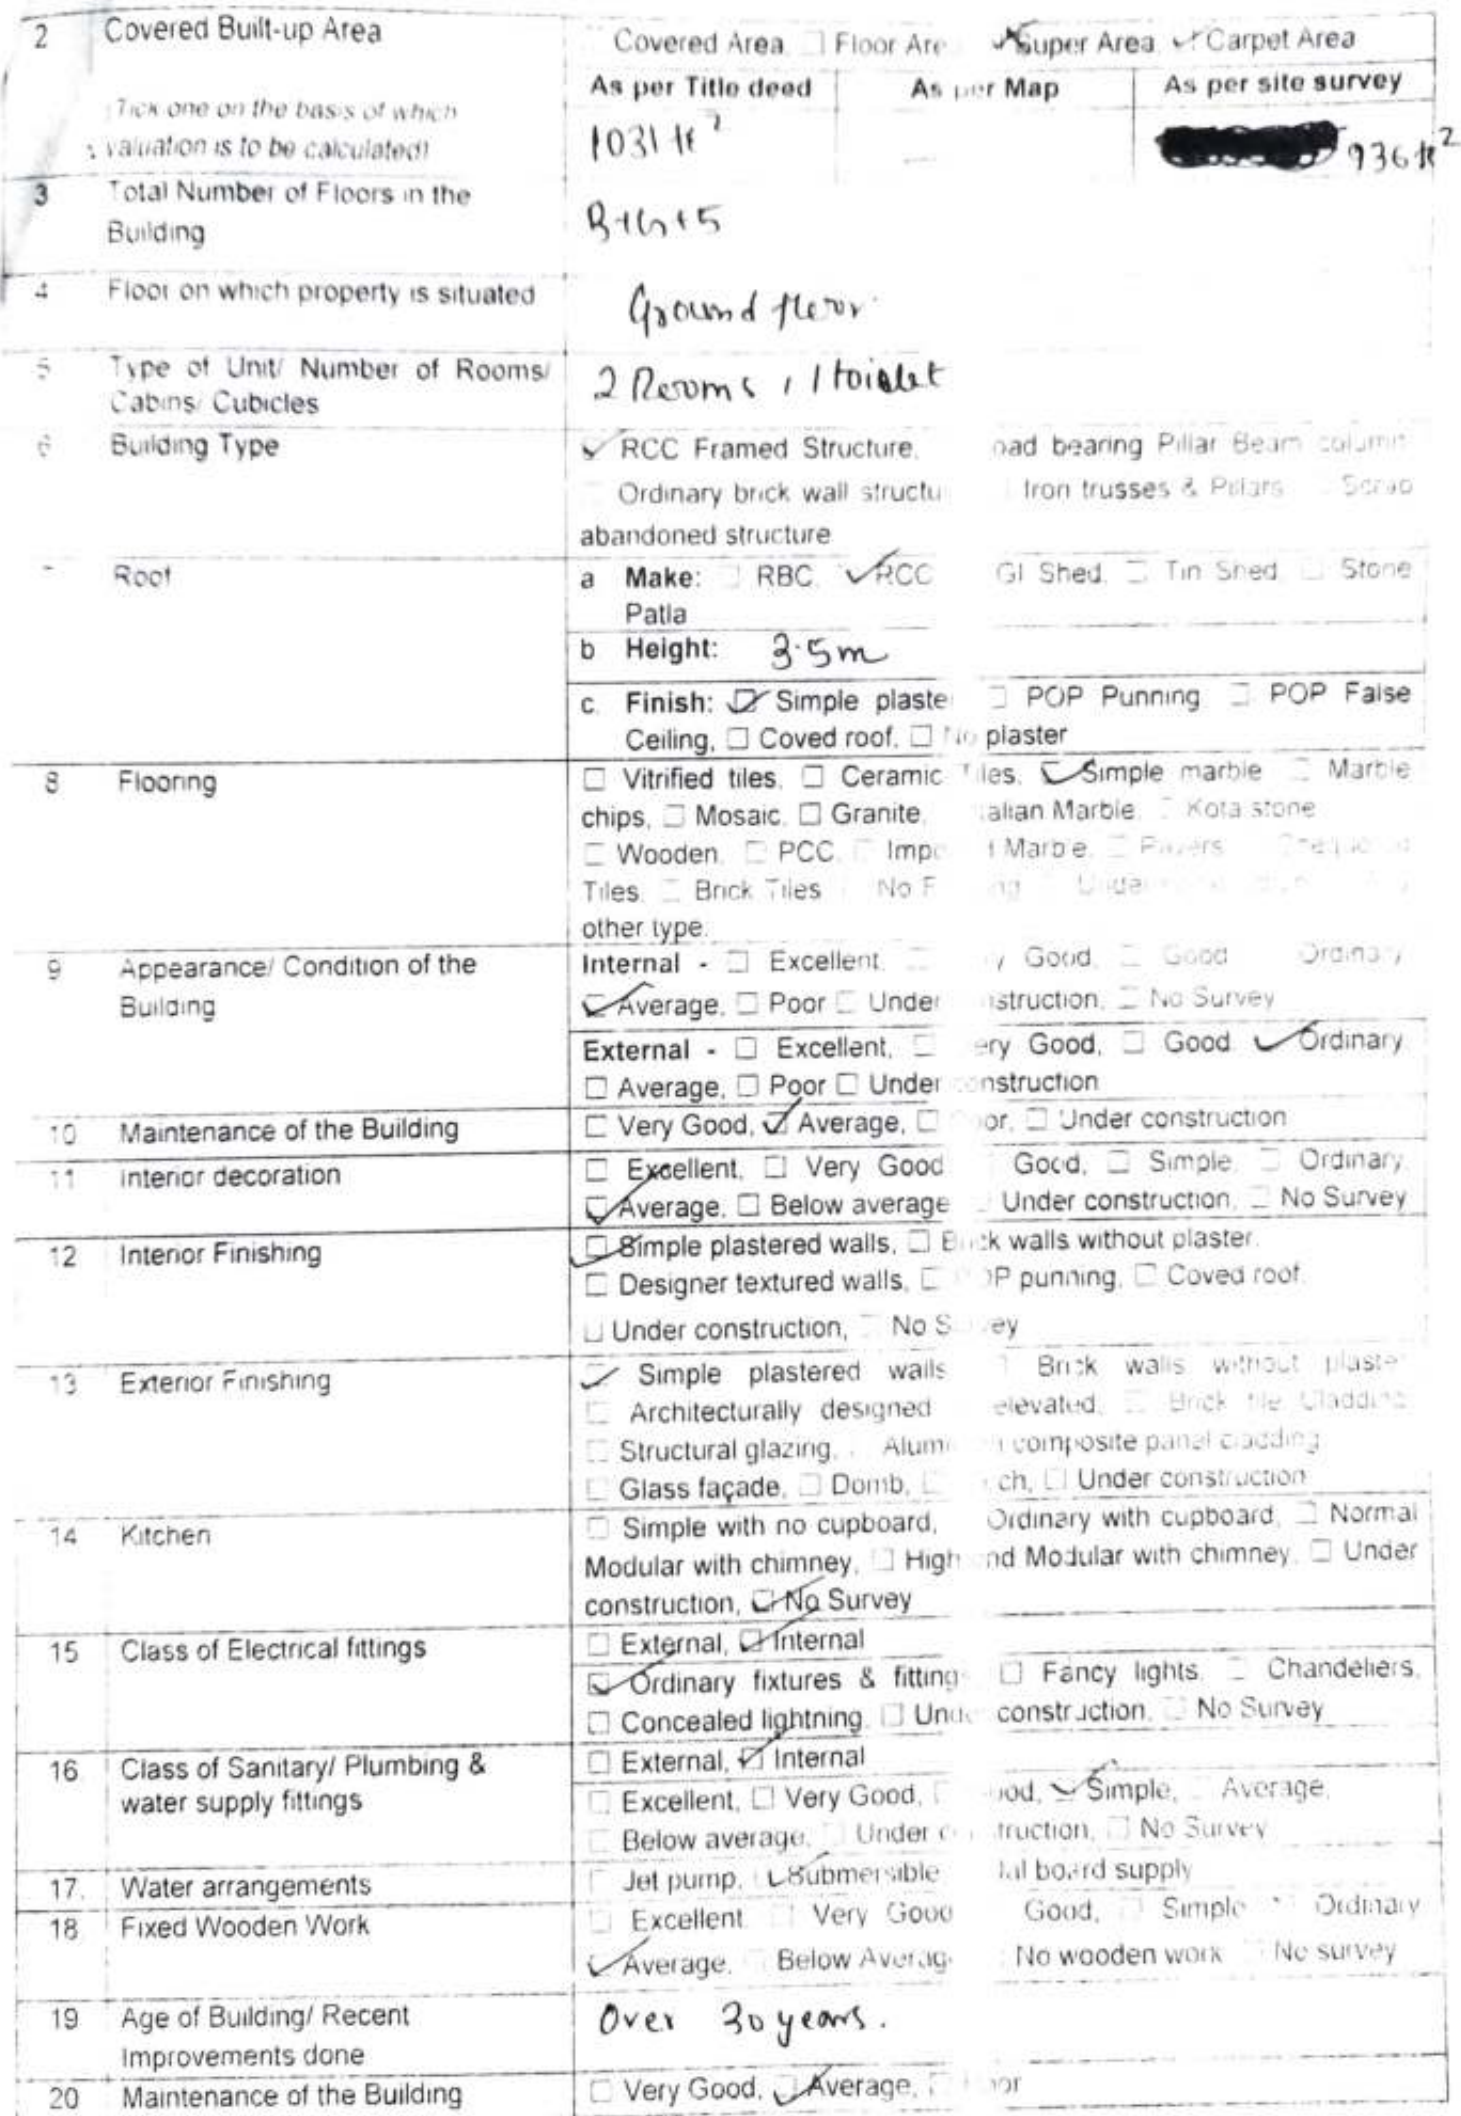 2 Covered Built-up Area Covered Area, ☐ Floor Are Super Area, ✓ Carpet Area
As per Title deed As per Map As per site survey
(Tick one on the basis of which
valuation is to be calculated) 1031 ft² — 936 ft²
3 Total Number of Floors in the
Building B+G+5
4 Floor on which property is situated Ground floor
5 Type of Unit/ Number of Rooms/
Cabins/ Cubicles 2 Rooms, 1 toielet
6 Building Type ✓ RCC Framed Structure, oad bearing Pillar Beam column
Ordinary brick wall structu Iron trusses & Pillars Scrap
abandoned structure
Roof a Make: ☐ RBC, ✓ RCC GI Shed, ☐ Tin Shed ☐ Stone
Patla
b Height: 3.5m
c. Finish: ☑ Simple plaste ☐ POP Punning ☐ POP False
Ceiling, ☐ Coved roof, ☐ No plaster
8 Flooring ☐ Vitrified tiles, ☐ Ceramic Tiles, ☑ Simple marble ☐ Marble
chips, ☐ Mosaic, ☐ Granite, alian Marble, ☐ Kota stone
☐ Wooden, ☐ PCC, ☐ Impo Marble, ☐ Pavers
Tiles, ☐ Brick Tiles No F ng
other type:
9 Appearance/ Condition of the
Building Internal - ☐ Excellent, ☐ y Good, ☐ Good Ordinary
☑ Average, ☐ Poor ☐ Under nstruction, ☐ No Survey
External - ☐ Excellent, ☐ ery Good, ☐ Good ☑ Ordinary
☐ Average, ☐ Poor ☐ Under construction
10 Maintenance of the Building ☐ Very Good, ☑ Average, ☐ oor, ☐ Under construction
11 Interior decoration ☐ Excellent, ☐ Very Good Good, ☐ Simple, ☐ Ordinary,
☑ Average, ☐ Below average Under construction, ☐ No Survey
12 Interior Finishing ☑ Simple plastered walls, ☐ Brick walls without plaster,
☐ Designer textured walls, ☐ OP punning, ☐ Coved roof,
☐ Under construction, ☐ No Survey
13 Exterior Finishing ☑ Simple plastered walls ☐ Brick walls without plaster
☐ Architecturally designed elevated, ☐ Brick tile Cladding
☐ Structural glazing, Alum composite panel cladding
☐ Glass façade, ☐ Domb, ☐ ch, ☐ Under construction
14 Kitchen ☐ Simple with no cupboard, Ordinary with cupboard, ☐ Normal
Modular with chimney, ☐ High end Modular with chimney, ☐ Under
construction, ☑ No Survey
15 Class of Electrical fittings ☐ External, ☑ Internal
☑ Ordinary fixtures & fitting ☐ Fancy lights, ☐ Chandeliers,
☐ Concealed lightning, ☐ Unde construction, ☐ No Survey
16 Class of Sanitary/ Plumbing &
water supply fittings ☐ External, ☑ Internal
☐ Excellent, ☐ Very Good, ood, ☑ Simple, Average,
☐ Below average, ☐ Under c truction, ☐ No Survey
17. Water arrangements ☐ Jet pump, ☑ Submersible al board supply
18 Fixed Wooden Work ☐ Excellent ☐ Very Good Good, ☐ Simple ☐ Ordinary
☑ Average, ☐ Below Averag No wooden work ☐ No survey
19 Age of Building/ Recent
Improvements done Over 30 years.
20 Maintenance of the Building ☐ Very Good, ☑ Average, ☐ oor